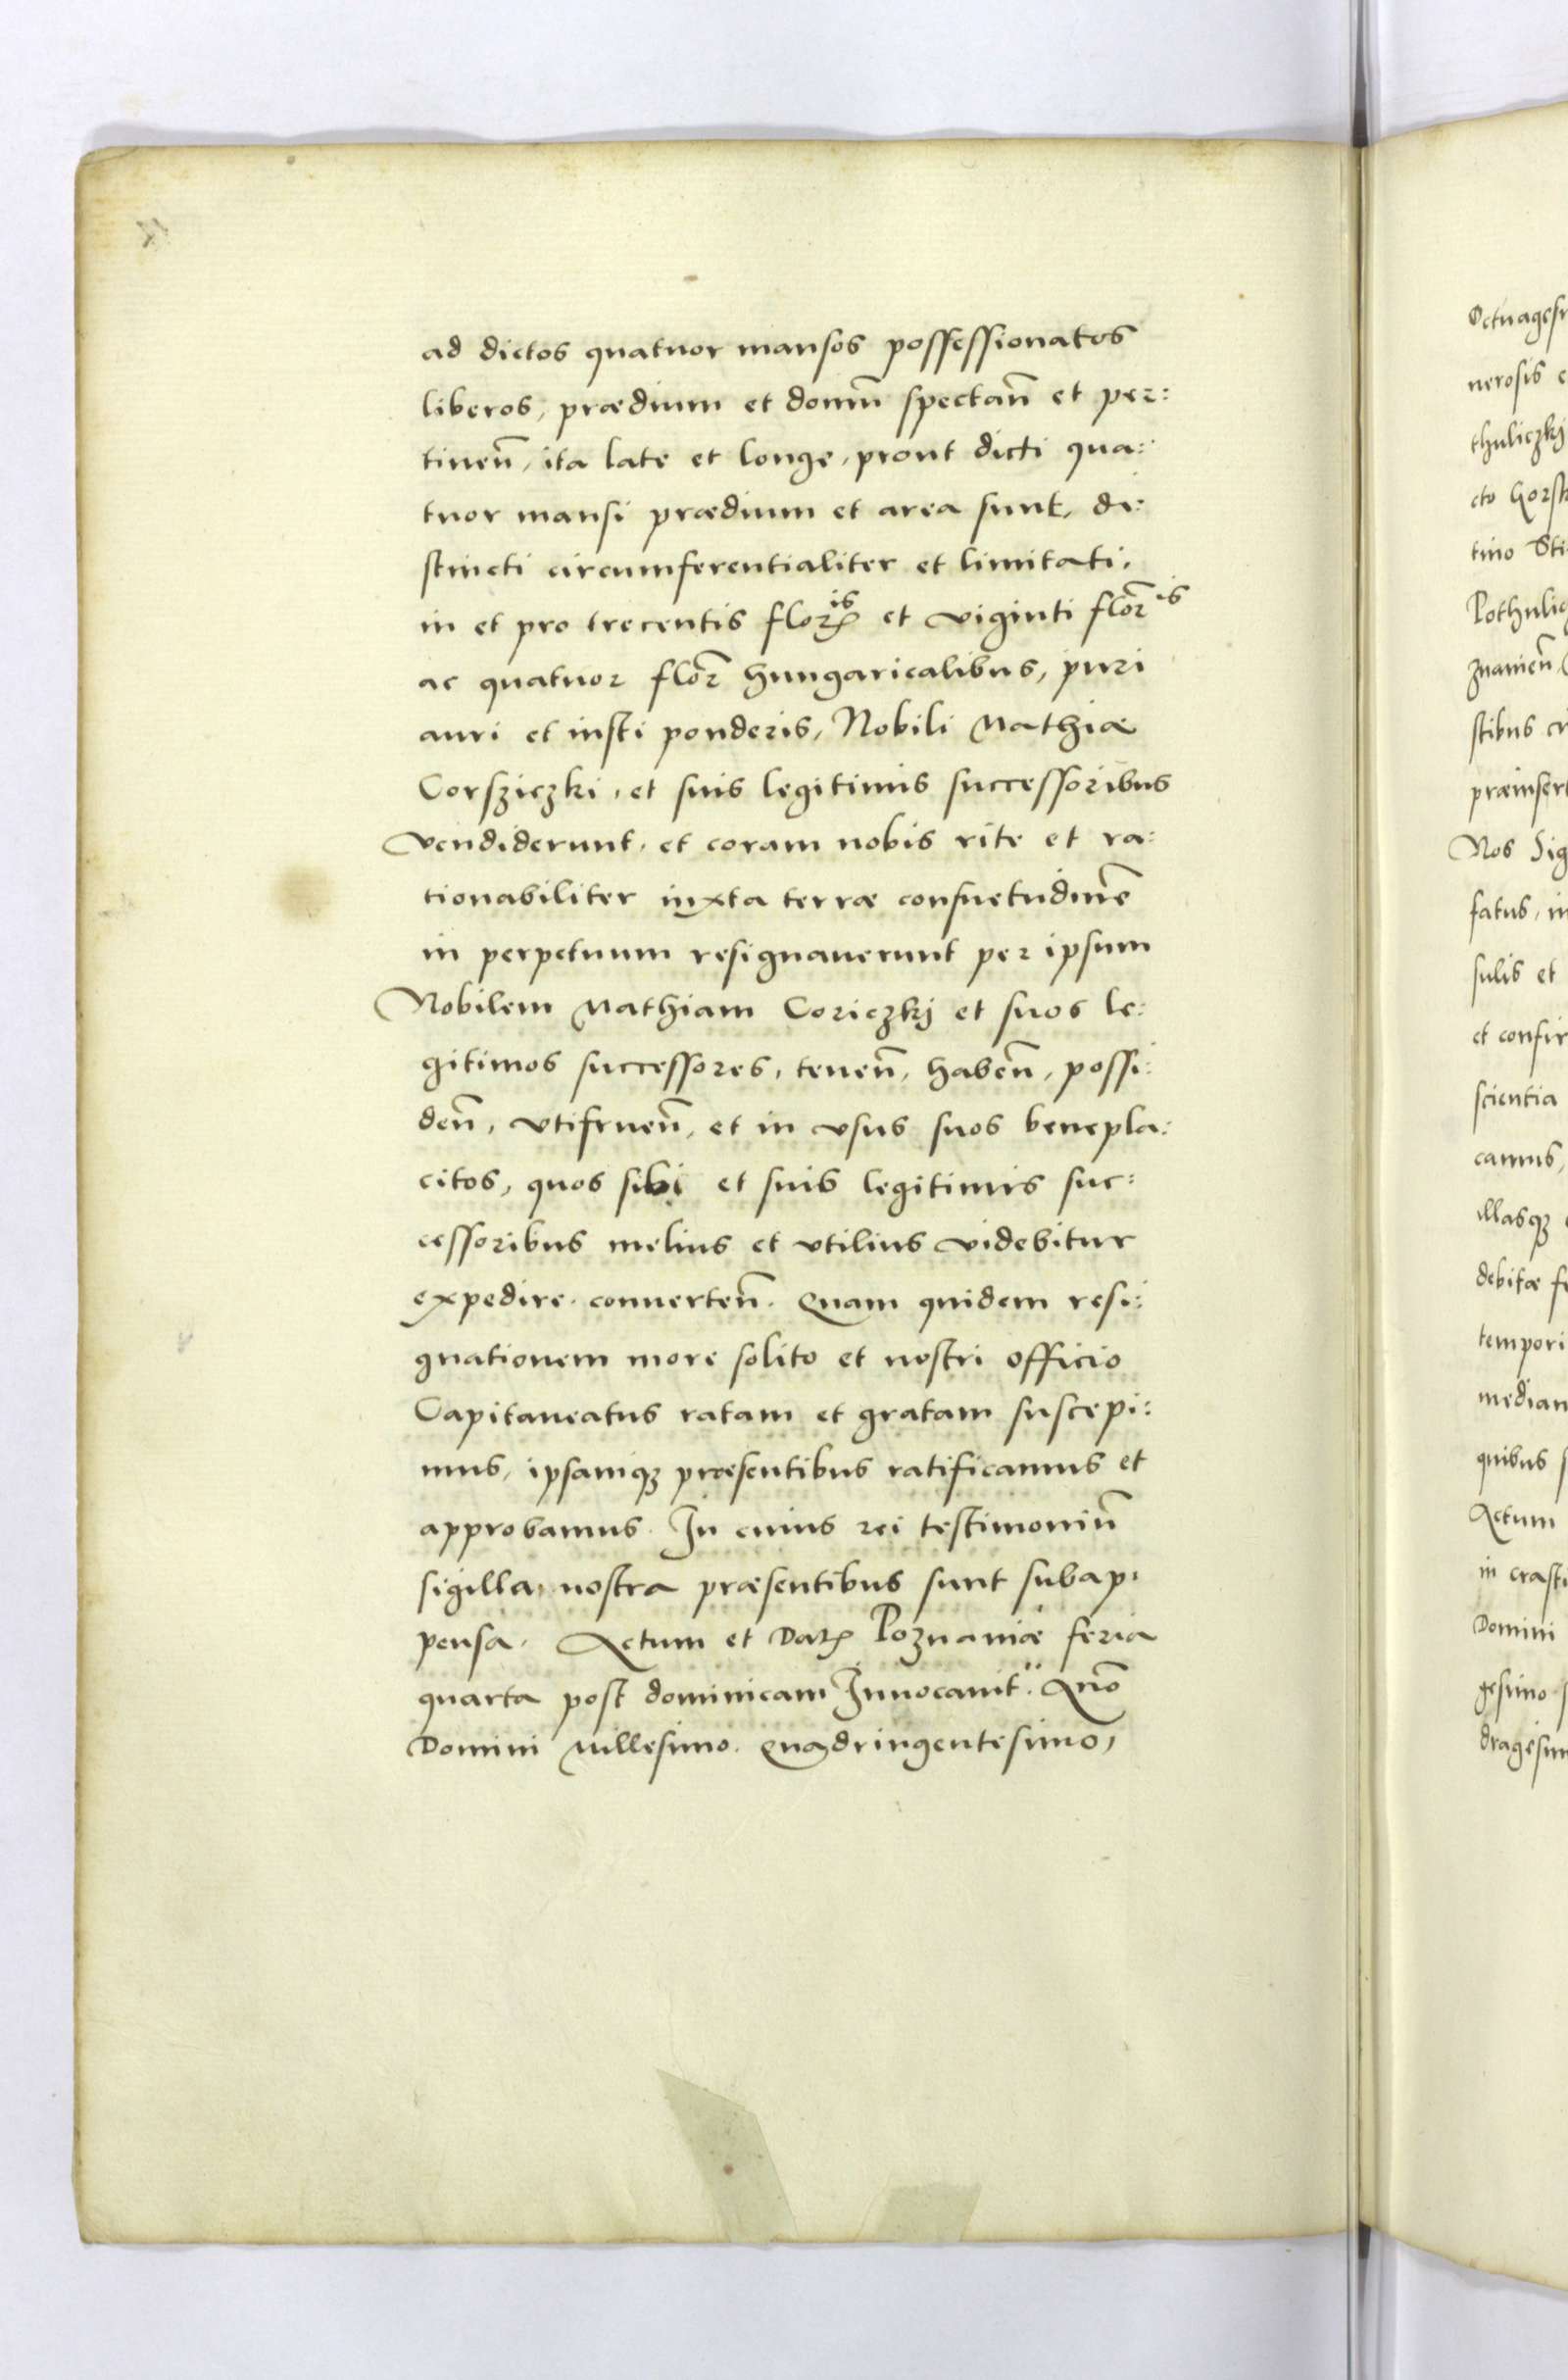 ad dictos quatuor mansos possessionatos
liberos, prædium et domũ spectañ et per:
tineñ, ita late et longe, prout dicti qua:
tuor mansi prædium et area sunt, di:
stincti circumferentialiter et limitati,
in et pro trecentis florꝭis et viginti flor̃is
ac quatuor flor̃ hungaricalibus, puri
auri et iusti ponderis, Nobili Mathiæ
Corsziczki, et suis legitimis successoribus
vendiderunt, et coram nobis rite et ra:
tionabiliter iuxta terræ consuetudinẽ
in perpetuum resignauerunt per ipsum
Nobilem Mathiam Coriczkj et suos le:
gitimos successores, teneñ, habeñ, possi:
deñ, vtifrueñ, et in vsus suos benepla:
citos, quos sibi et suis legitimis suc:
cessoribus melius et vtilius videbitur
expedire. conuerteñ. Quam quidem resi:
gnationem more solito et nostri officio
Capitaneatus ratam et gratam suscepi:
mus, ipsamqꝫ præsentibus ratificamus et
approbamus. In cuius rei testimoniũ
sigilla nostra præsentibus sunt subap:
pensa. Actum et Datꝭ Poznaniæ feria
quarta post dominicam Inuocauit. Año
Domini Millesimo. Quadringentesimo,
Octuagesi
nerosis
thuliczkj
cto Gorsk
tino Sti
Pothulic
znanieñ
stibus
præinsert
Nos Sig
fatus, in
sulis et
et confir
scientia
camus,
illasqꝫ
debitæ
tempori
median
quibus
Actum
in crasti
Domini
gesimo
dragesim